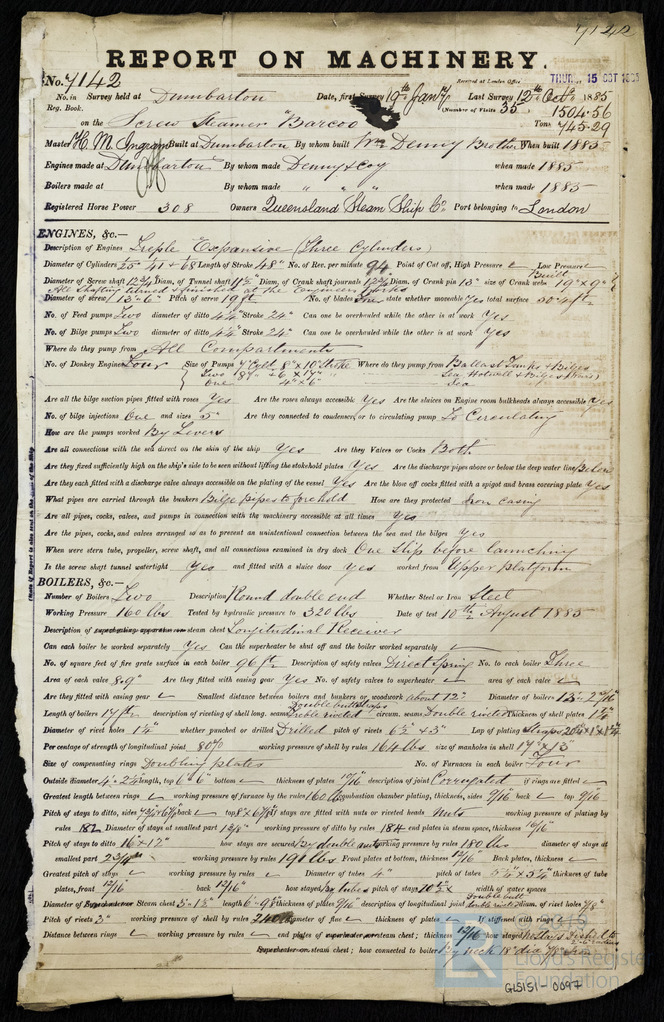 7142
REPORT ON MACHINERY.
No. 7142
Received at London Office THURS. 15 OCT 1885
No. in Survey held at Dumbarton Date, first Survey 19th Jany Last Survey 12th Oct 1885
Reg. Book. (Number of Visits 35
on the Screw Steamer "Barcoo" Tons 1504.56
745.29
Master H. M. Ingram Built at Dumbarton By whom built Wm Denny & Brothers When built 1885
Engines made at Dumbarton By whom made Denny & Coy when made 1885
Boilers made at By whom made " " " when made 1885
Registered Horse Power 308 Owners Queensland Steam Ship Co. Port belonging to London
ENGINES, &c.—
Description of Engines Triple Expansive (Three Cylinders)
Diameter of Cylinders 25" 41 & 68 Length of Stroke 48" No. of Rev. per minute 94 Point of Cut off, High Pressure Low Pressure
Diameter of Screw shaft 12 3/4 Diam. of Tunnel shaft 11 1/2 Diam. of Crank shaft journals 12 3/4 Diam. of Crank pin 13" size of Crank webs Built 19" × 9"
All shafting turned & finished at the Engineers Works
Diameter of screw 13'-6" Pitch of screw 19 ft No. of blades four state whether moveable Yes total surface
No. of Feed pumps Two diameter of ditto 4 1/4 Stroke 24" Can one be overhauled while the other is at work Yes
No. of Bilge pumps Two diameter of ditto 4 1/4 Stroke 24" Can one be overhauled while the other is at work Yes
Where do they pump from All Compartments
No. of Donkey Engines Four Size of Pumps 8" × 10" Stroke Where do they pump from Ballast Tanks & Bilges
Two Sea, Hotwell & Bilges
One 4" × 6" Sea
Are all the bilge suction pipes fitted with roses Yes Are the roses always accessible Yes Are the sluices on Engine room bulkheads always accessible Yes
No. of bilge injections One and sizes 5" Are they connected to condenser, or to circulating pump To Circulating
How are the pumps worked By Levers
Are all connections with the sea direct on the skin of the ship Yes Are they Valves or Cocks Both
Are they fixed sufficiently high on the ship's side to be seen without lifting the stokehold plates Yes Are the discharge pipes above or below the deep water line Below
Are they each fitted with a discharge valve always accessible on the plating of the vessel Yes Are the blow off cocks fitted with a spigot and brass covering plate Yes
What pipes are carried through the bunkers Bilge pipes to fore hold How are they protected Iron casing
Are all pipes, cocks, valves, and pumps in connection with the machinery accessible at all times Yes
Are the pipes, cocks, and valves arranged so as to prevent an unintentional connection between the sea and the bilges Yes
When were stern tube, propeller, screw shaft, and all connections examined in dry dock One slip before launching
Is the screw shaft tunnel watertight Yes and fitted with a sluice door Yes worked from Upper platform
BOILERS, &c.—
Number of Boilers Two Description Round double end Whether Steel or Iron Steel
Working Pressure 160 lbs Tested by hydraulic pressure to 320 lbs Date of test 10th August 1885
Description of superheating apparatus or steam chest Longitudinal Receiver
Can each boiler be worked separately Yes Can the superheater be shut off and the boiler worked separately
No. of square feet of fire grate surface in each boiler 96 ft Description of safety valves Direct Spring No. to each boiler Three
Area of each valve 8.29 Are they fitted with easing gear Yes No. of safety valves to superheater area of each valve
Are they fitted with easing gear Smallest distance between boilers and bunkers or woodwork about 12" Diameter of boilers
Length of boilers 17 ft description of riveting of shell long. seams Double butt straps Treble riveted circum. seams Double riveted Thickness of shell plates
Diameter of rivet holes 1 1/4" whether punched or drilled Drilled pitch of rivets Lap of plating
Per centage of strength of longitudinal joint 80% working pressure of shell by rules 164 lbs size of manholes in shell 17" × 13"
Size of compensating rings Doubling plates No. of Furnaces in each boiler Four
Outside diameter length, top 6'-6" bottom thickness of plates description of joint Corrugated if rings are fitted
Greatest length between rings working pressure of furnace by the rules 160 lbs combustion chamber plating, thickness, sides 9/16 back top 9/16
Pitch of stays to ditto, sides back top If stays are fitted with nuts or riveted heads Nuts working pressure of plating by
rules 182 Diameter of stays at smallest part 1 3/8" working pressure of ditto by rules 184 end plates in steam space, thickness
Pitch of stays to ditto 16 × 17" how stays are secured By double nuts working pressure by rules 180 lbs diameter of stays at
smallest part working pressure by rules 190 lbs Front plates at bottom, thickness 12/16 Back plates, thickness
Greatest pitch of stays working pressure by rules Diameter of tubes 4" pitch of tubes thickness of tube
plates, front 12/16 back 12/16 how stayed by tubes pitch of stays width of water spaces
Diameter of Superheater or Steam chest length thickness of plates description of longitudinal joint Double butt double riveted diam. of rivet holes 7/8"
Pitch of rivets 3" working pressure of shell by rules diameter of flue thickness of plates If stiffened with rings
Distance between rings working pressure by rules end plates of superheater or steam chest; thickness 12/16 how stayed
Superheater or steam chest; how connected to boiler By neck 18" dia
LR
Lloyd's Register
Foundation
GLS151-0097